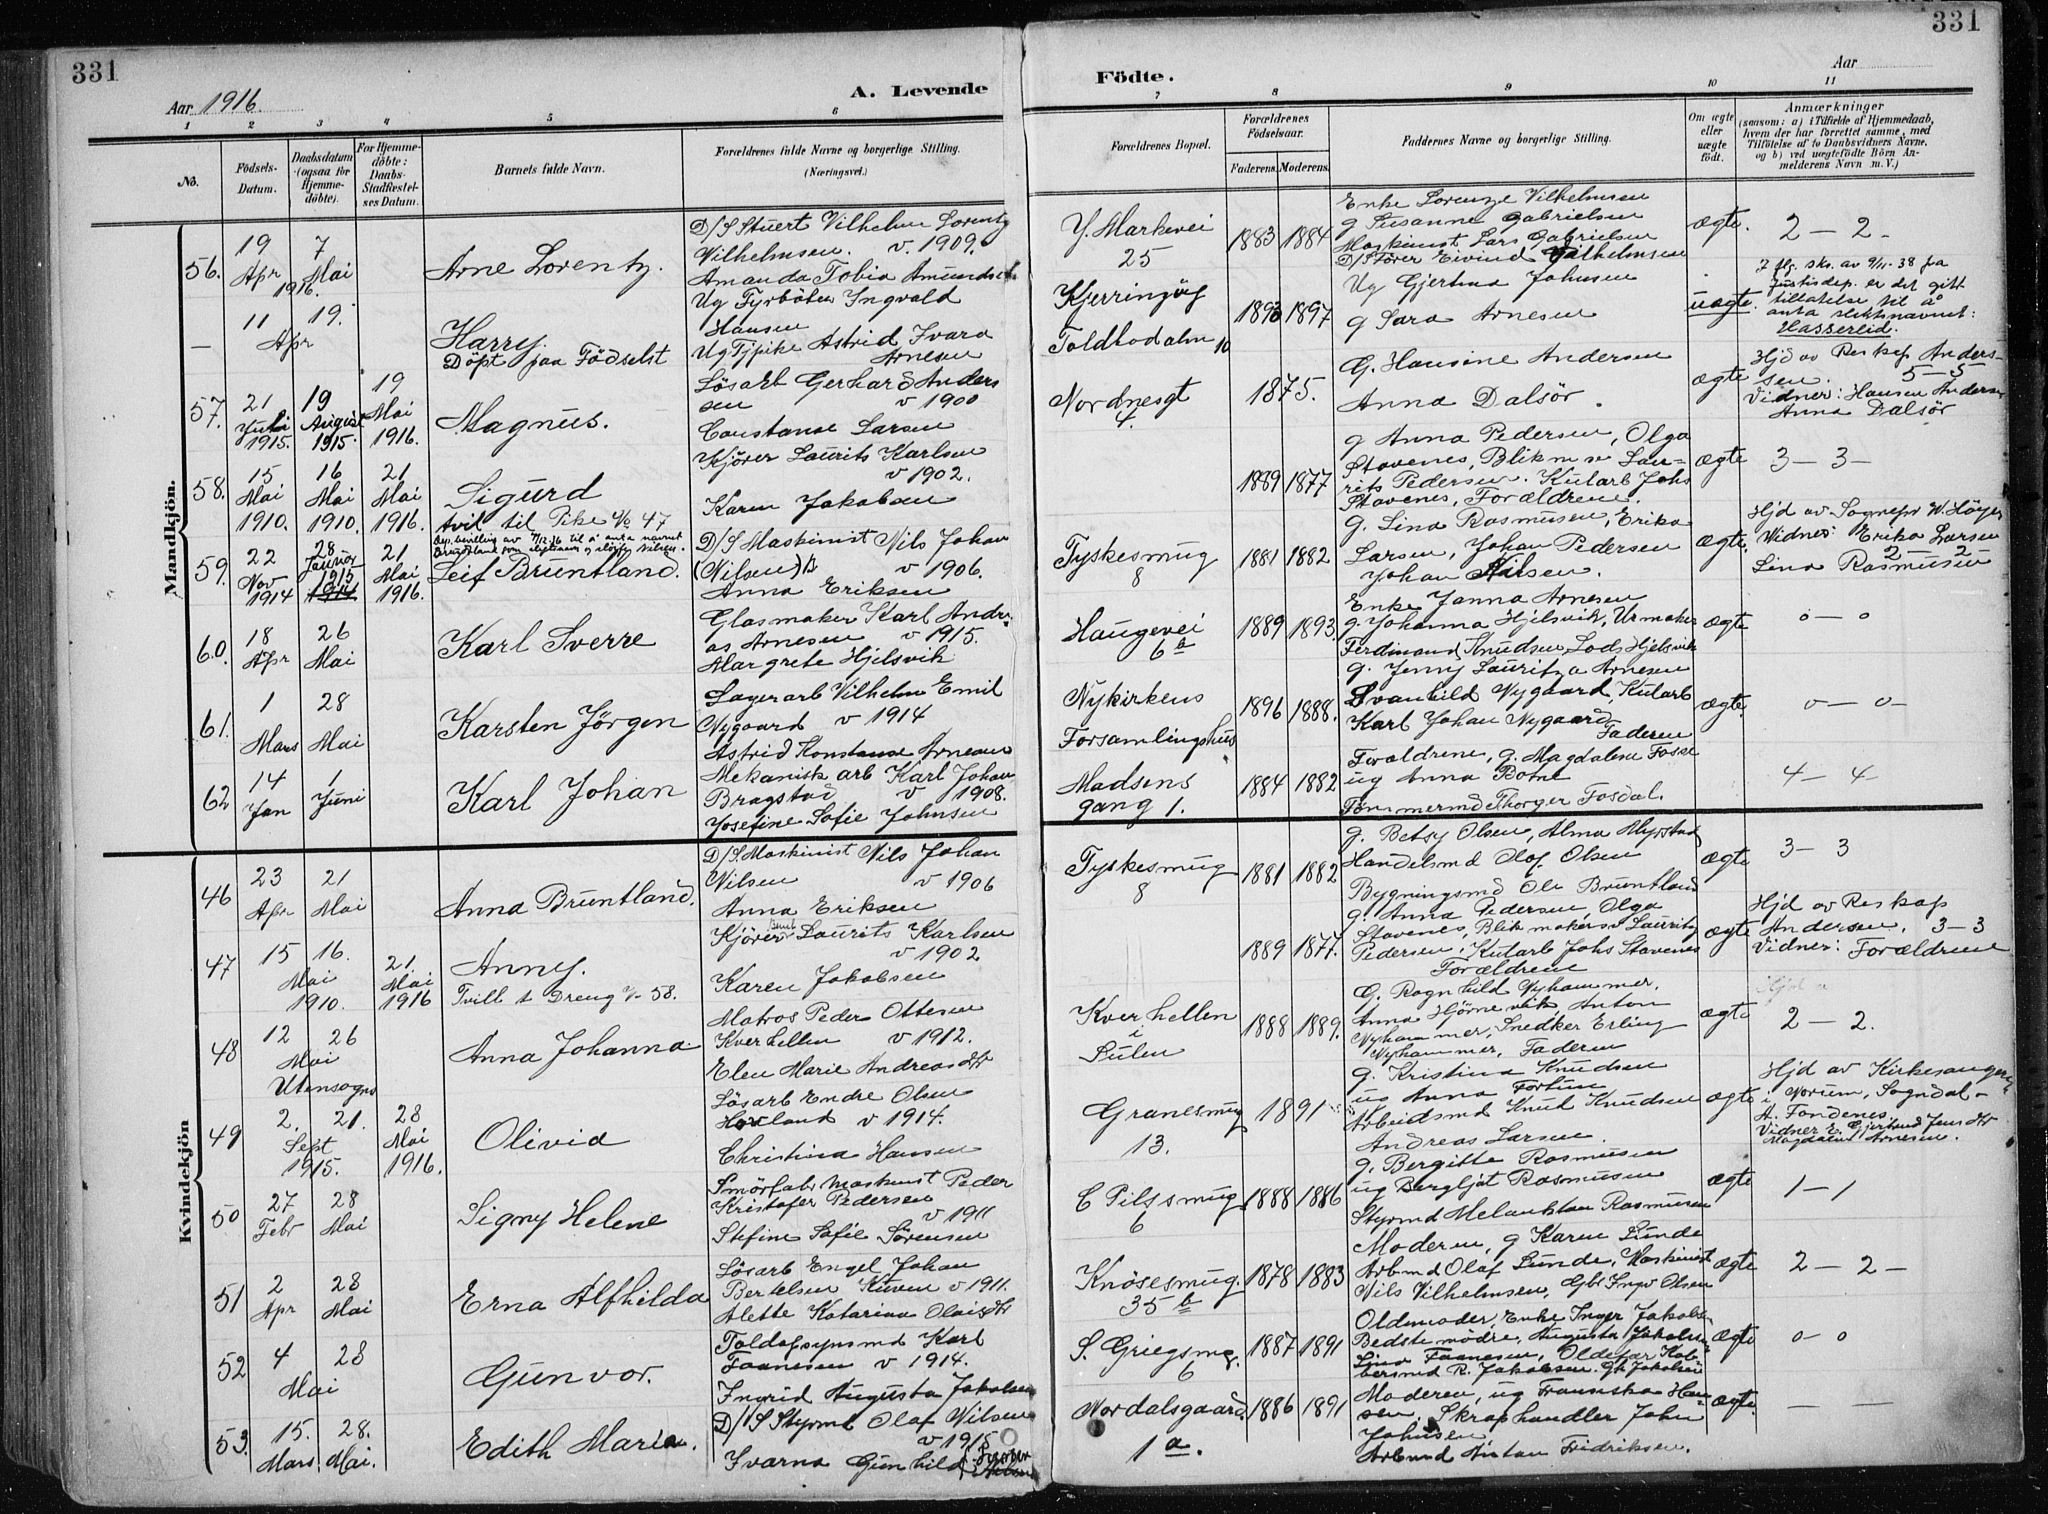 331
331
Aar 1916.
A. Levende
Födte.
Aar
1 2 3 4 5 6 7 8 9 10 11
No.
Födsels-
Datum.
Daabsdatum
(ogsaa for
Hjemme-
döbte).
For Hjemme-
döbte:
Daabs-
Stadfæstel-
ses Datum.
Barnets fulde Navn.
Forældrenes fulde Navne og borgerlige Stilling.
(Næringsvei.)
Forældrenes Bopæl.
Forældrenes
Födselsaar.
Faderens. Moderens.
Faddernes Navne og borgerlige Stilling.
Om ægte
eller
uægte
födt.
Anmærkninger
(saasom: a) i Tilfælde af Hjemmedaab,
hvem der har forrettet samme, med
Tilföielse af to Daabsvidners Navne,
og b) ved uægtefödte Börn An-
melderens Navn m. V.)
Mandkjön.
56.
19
Apr
1916.
7
Mai
Arne Lorentz.
D/S Stuert Vilhelm Lorentz
Wilhelmsen. v. 1909.
Amanda Tobia Amunds
Y. Markevei
25
1883 1884
Enke Lorenze Vilhelmsen
g Susanne Gabrielsen
Maskinist Lars Gabrielsen
D/S Förer Eivind Vilhelmsen
ægte.
2 – 2 –
–
11
19.
Apr
Harry.
Döpt paa Födselst
Ug Fyrböter Ingvald
Hansen
Ug Tjpike Astrid Ivara
Arnesen
Kjerringöy
Toldbodalm 10
1893 1897
Ug Gjertina Johnsen
g Sara Arnesen
uægte.
J flg. skr. av 9/11-38 fra
Justisdep. er det gitt
tillatelse til å
anta slektsnavnet:
Hasserleid.
57.
21
Juli
1915.
19
August
1915.
19
Mai
1916.
Magnus.
Lösarb Gerhard Anders
sen v 1900
Constanse Larsen
Nordnesgt
4.
1875.
G. Hansine Andersen
Anna Dalsör.
ægte
Hjd av Reskap Anders-
sen. 5 – 5
Vidner: Hansen Anderse
Anna Dalsör
58.
15
Mai
1910.
16
Mai
1910.
21
Mai
1916.
Sigurd
tvil til Pike № 47
Kjörer Laurits Karlsen
v 1902.
Karen Jakobsen
1889 1877
g Anna Pedersen, Olga
Stavenes, Blikm sv Lau-
rits Pedersen. Kularb Johs
Stavenes, Forældrene.
ægte
3 – 3 –
59.
22
Nov
1914
28
Januar
1915
1914
21
Mai
1916.
Leif Bruntland.
D/S Maskinist Nils Johan
(Nilsen) v 1906.
Anna Eriksen
Tyskesmug
8
1881 1882
g. Lina Rasmussen, Erika
Larsen, Johan Pedersen
Johan Nilsen.
ægte.
Hjd av Sognepr W. Höyer
Vidner: Erika Larsen
2 – 2
Lina Rasmusen
60.
18
Apr
26
Mai
Karl Sverre
Glasmaker Karl Andre-
as Arnesen v 1915.
Margrete Hjelsvik
Haugevei
6 a
1889 1893.
Enke Janna Arnesen
g. Johanna Hjelsvik, Urmaker
Ferdinand Knudsen, Lods Hjelsvik
g. Jenny Lauritza Arnesen
ægte
0 – 0
61.
1
Mars
28
Mai
Karsten Jörgen
Lagerarb Vilhelm Emil
Nygaard v 1914
Astrid Konstanse Arnesen
Nykirkens
Forsamlingshus
1896 1888.
Svanhild Nygaard, Kularb
Karl Johan Nygaard
Faderen
ægte.
0 – 0 –
62
14
Jan
1
Juni
Karl Johan
Mekanisk arb Karl Johan
Bragstad v 1908.
Josefine Sofie Johnsen
Madsens
gang 1.
1884 1882
Forældrene, g. Magdalene Fosse
ug Anna Botne
Tömmermd Thorger Fosdal.
4 – 4 –
Kvindekjön
46
23
Apr
21
Mai
Anna Bruntland.
D/S. Maskinist Nils Johan
Nilsen v 1906
Anna Eriksen
Tyskesmug
8
1881 1882
g. Betsy Olsen, Alma Myrstad
Handelsmd Olof Olsen
Bygningsmd Ole Bruntland
ægte
3 – 3
47
15
16.
Mai
1910.
21.
Mai
1916
Anny.
Tvill t Dreng № 58.
Kjörer Laurits Karlsen
v 1902
Karen Jakobsen
1889 1877.
g. Anna Pedersen, Olga
Stavenes, Blikmakersv Laurits
Pedersen, Kularb Johs Stavenes
Forældrene
ægte
Hjd av Reskap
Andersen. 3 – 3
Vidner: Forældrene
48
12
26
Mai
Utensogns
Anna Johanna.
Matros Peder Ottesen
Kverhellen v 1912.
Elen Marie Andreasdtr
Kverhellen
i
Sulen
1888 1889.
G. Ragnhild Nyhammer,
Anna Hjörnevik, Anton
Nyhammer, Snedker Erling
Nyhammer, Faderen
ægte
2 – 2.
49
2.
21.
Sept
1915.
28
Mai
1916.
Olivia
Lösarb Endre Olsen
Hovland v 1914.
Christina Hansen
Granesmug
13.
1891
g. Kristina Knudsen
ug Anna Fortun
Arbeidsmd Knud Knudsen
Andreas Larsen.
ægte
Hjd av Kirkesanger
i Norum, Sogndal –
A. Fondenes
Vidner E. Gjertrud Jens dtr
Magdalene Arnesen.
50
27
Febr
28
Mai
Signy Helene
Smörfabr maskinist Peder
Kristofer Pedersen
v 1911
Stefine Sofie Sörensen
C Pilssmug
6
1888 1886
g. Bergitte Rasmusen
ug Bergljot Rasmusen
Styrmd Melankton Rasmusen
ægte
1 – 1
51
2
Apr
28
Mai
Erna Alfhilda
Lösarb Engel Johan
Bertelsen Kuven v 1911.
Alette Katarina Olaisdtr
Knösesmug.
35 b
1878 1883
Moderen, g Karen Lunde
Arbmd Olaf Lunde, Maskinist
Nils Vilhelmsen, Gbr Ingv Olsen
ægte
2 – 2 –
52
4
28
Mai
Gunvor.
Toldopsynsmd Karl
Faanesen v 1914.
Ingrid Augusta Jakobsen
S. Griegsmg.
6
1887 1891
Oldemoder, Enke Inger Jakobsen
Bedstemödre, Augusta Jakobsen
Lina Faanesen, Oldefar Kob-
bersmd R. Jakobsen. Gh Jakobsen
ægte
0 – 0
53.
15.
Mars.
28.
Mai.
Edith Marie.
D/S Styrmd Olaf Nilsen
v 1915
Ivarna Gunhild
Nordalsgaard.
1 a.
1886 1891
Moderen, ug Franciska Han-
sen. Skraphandler John
Johnsen
Arbmd Anton Fridriksen.
ægte.
– –